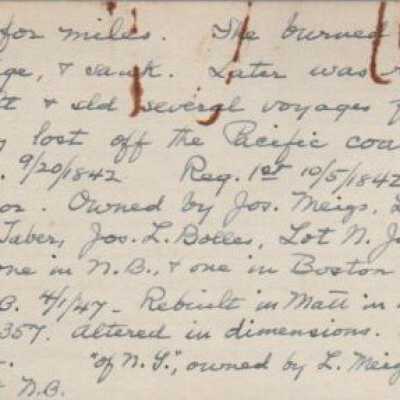 for miles. The burned
ge, & sank. Later was
tt & did several voyages
lost off the Pacific coa
. 9/20/1842 Reg. 1st 10/5/1842
or. Owned by Jos. Meigs, L
Taber, Jos. L. Bolles, Lot N. J
one in N.B., & one in Boston
B. 4/1/47 - Rebuilt in Matt in
357. Altered in dimensions.
. "of N.Y.", owned by L. Meig
N.B.